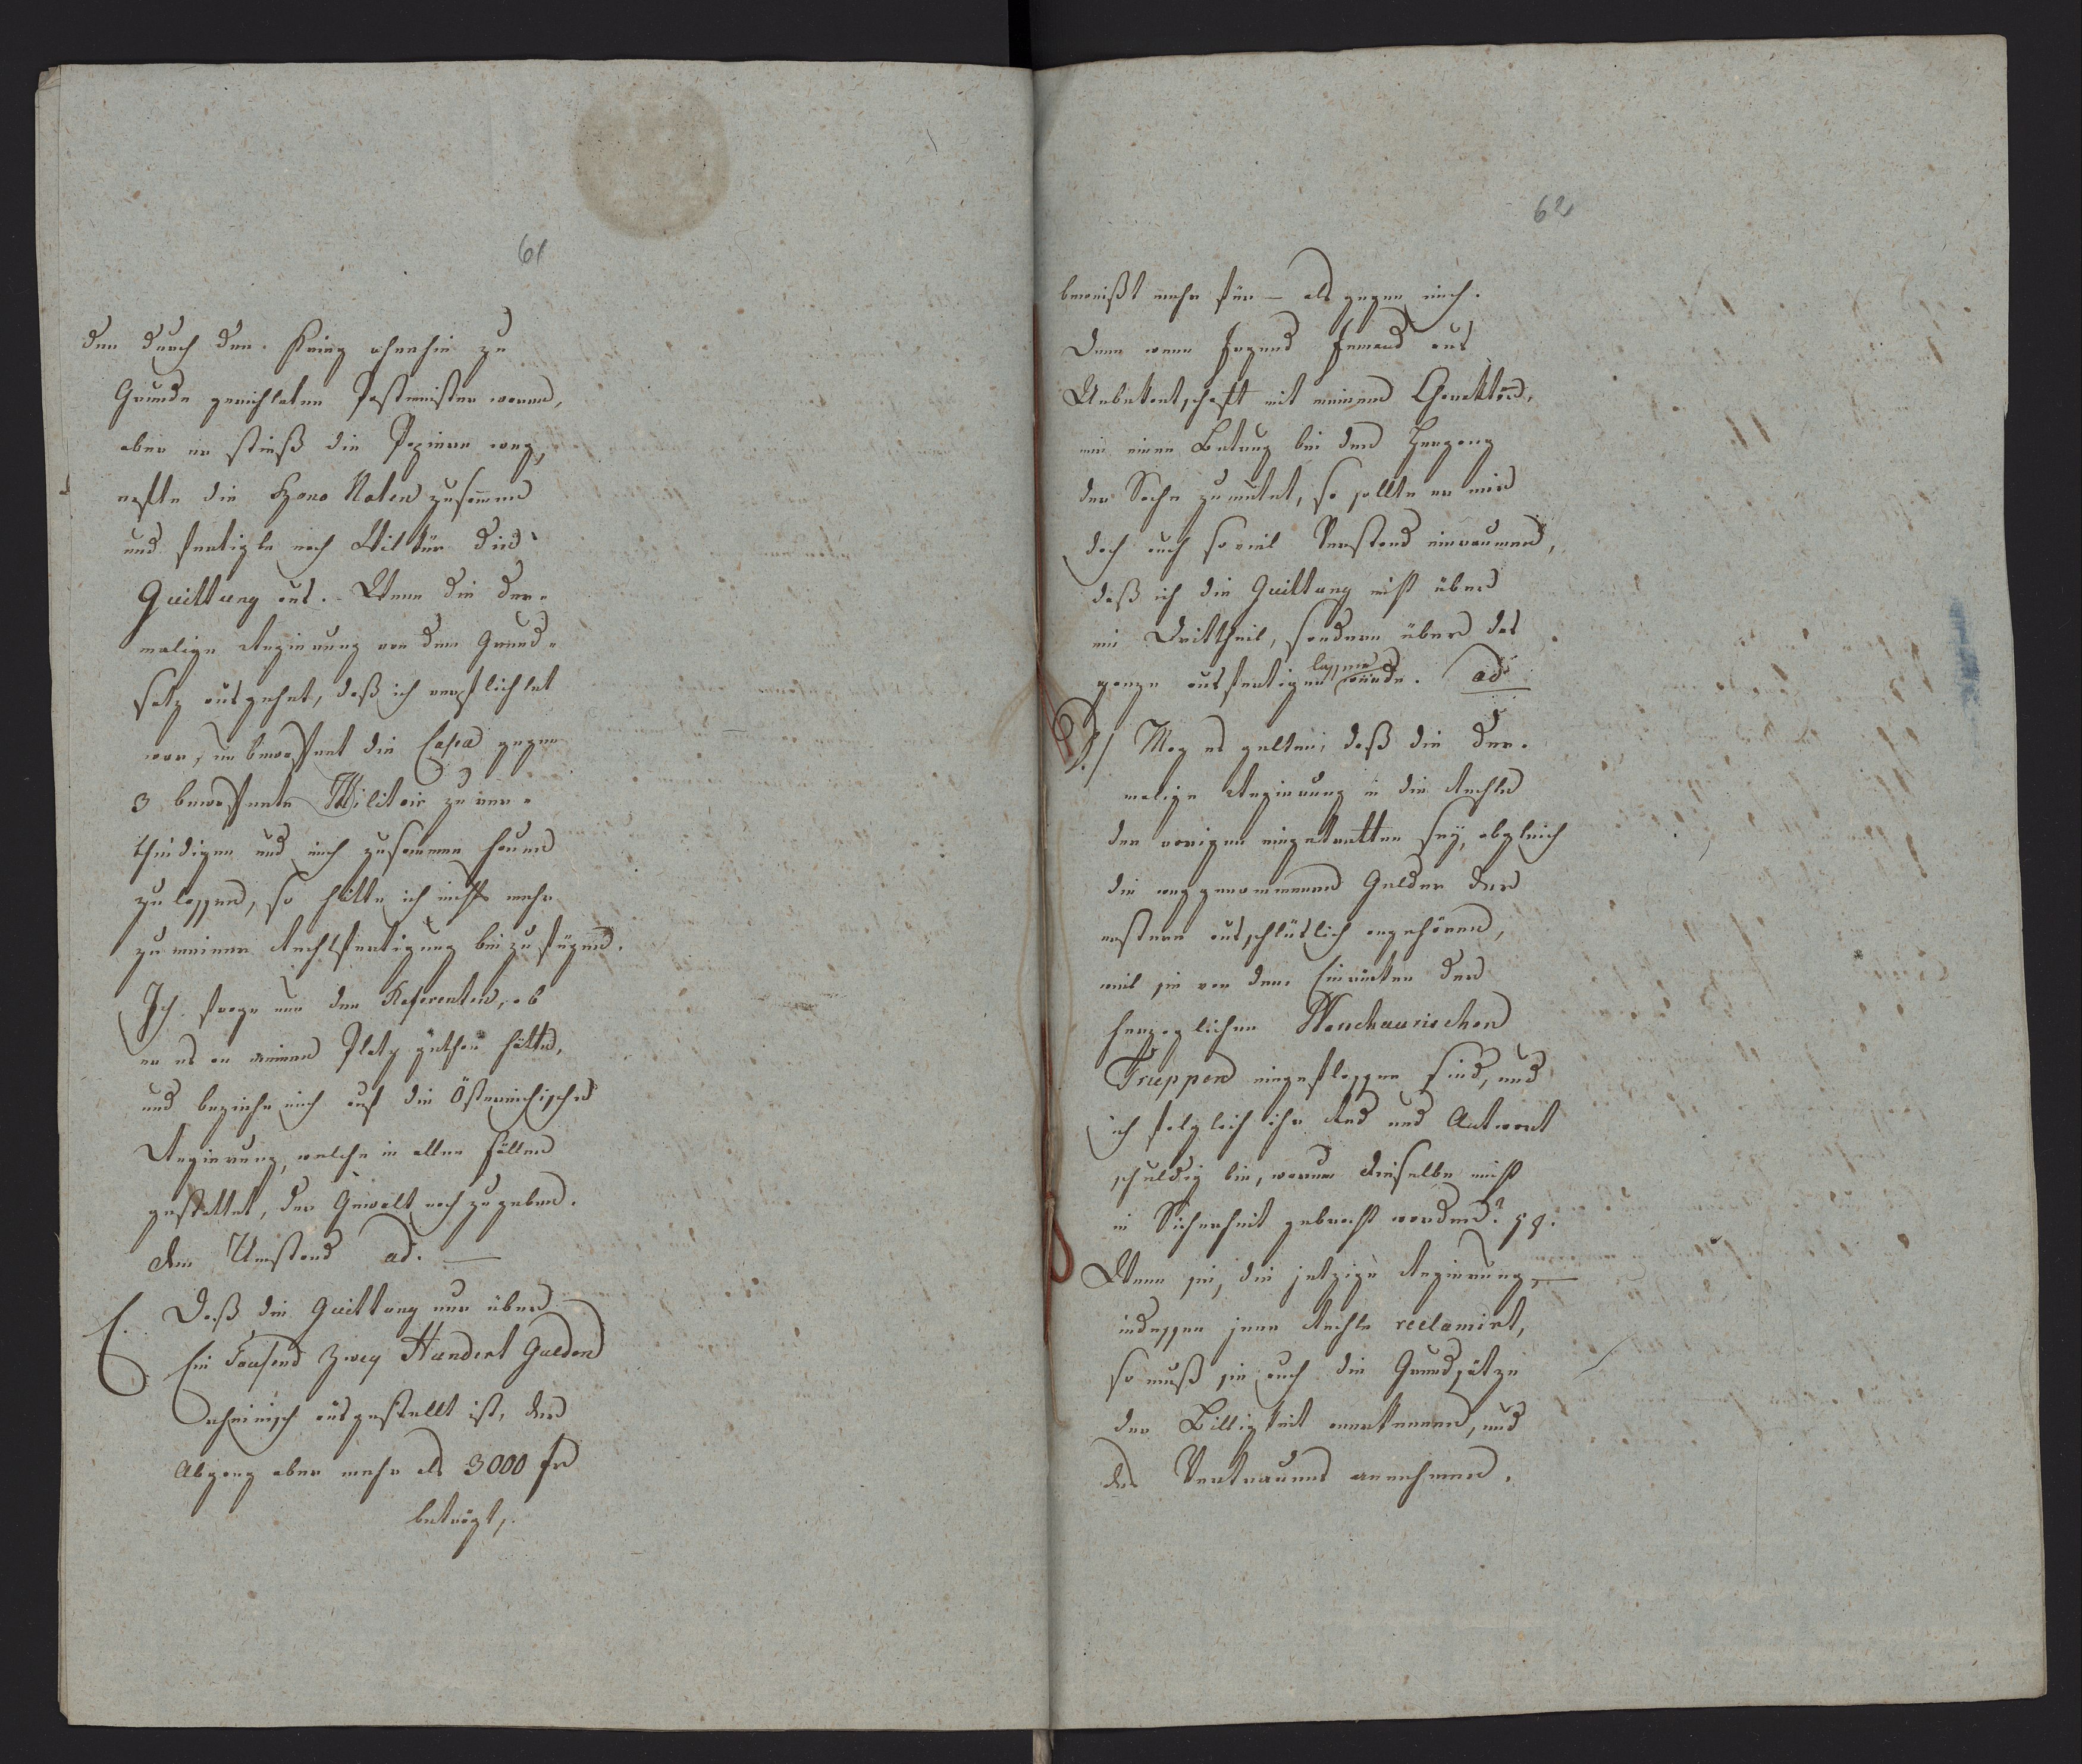 61
den durch den Krieg ohnehin zu
Grunde gerichteten Postmeister waren,
aber er stieß die Papiere weg,
raffte die Noten zusammen
und fertigte nach Wilkür die
Quittung aus. Wenn die der-
malige Regierung von dem Grund-
satz ausgehet, daß ich verpflichtet
war, unbewaffnet die Cassa gegen
3 bewaffnete Militair zu ver-
theidigen und mich zusammen hauen
zu lassen, so hätte ich nichts mehr
zu meiner Rechtfertigung beizufügen.
Ich frage nur den Referenten, ob
er es an meinem Platz gethan hätte,
und beziehe mich auf die Östereichische
Regierung, welche in allen Fällen
gestattet, der Gewalt nachzugeben.
Den Umstand ad. —
C. Daß die Quittung nur über
Ein Tausend Zwey Hundert Gulden
rheinisch ausgestellt ist, der
Abgang aber mehr als 3000 fr
beträgt,
62
beweißt mehr für – als gegen mich.
Denn wenn Irgend Jemand aus
Unbekantschaft mit meinem Charakter,
mir einen Betrug bei dem Hergang
der Sache zumutet, so sollte er mir
doch auch soviel Verstand einraumen,
daß ich die Quittung nicht über
ein Drittheil, sondern über das
ganze ausfertigen lassen würde. ad
D./ Mag es gelten, daß die der-
malige Regierung in die Rechte
der vorigen eingetretten sey, obgleich
die weggenommenen Gelder der
erstern ausschlüslich angehören,
weil sie vor dem Einrücken der
herzoglichen
Truppen eingeflossen sind, und
ich folglich ihr Red und Antwort
schuldig bin, warum dieselbe nicht
in Sicherheit gebracht worden?
Wenn sie, die jetzige Regierung,
indessen jene Rechte reclamirt,
so muß sie auch die Grundsätze
der Billigkeit anerkennen, und
des Vertrauens annehmen.